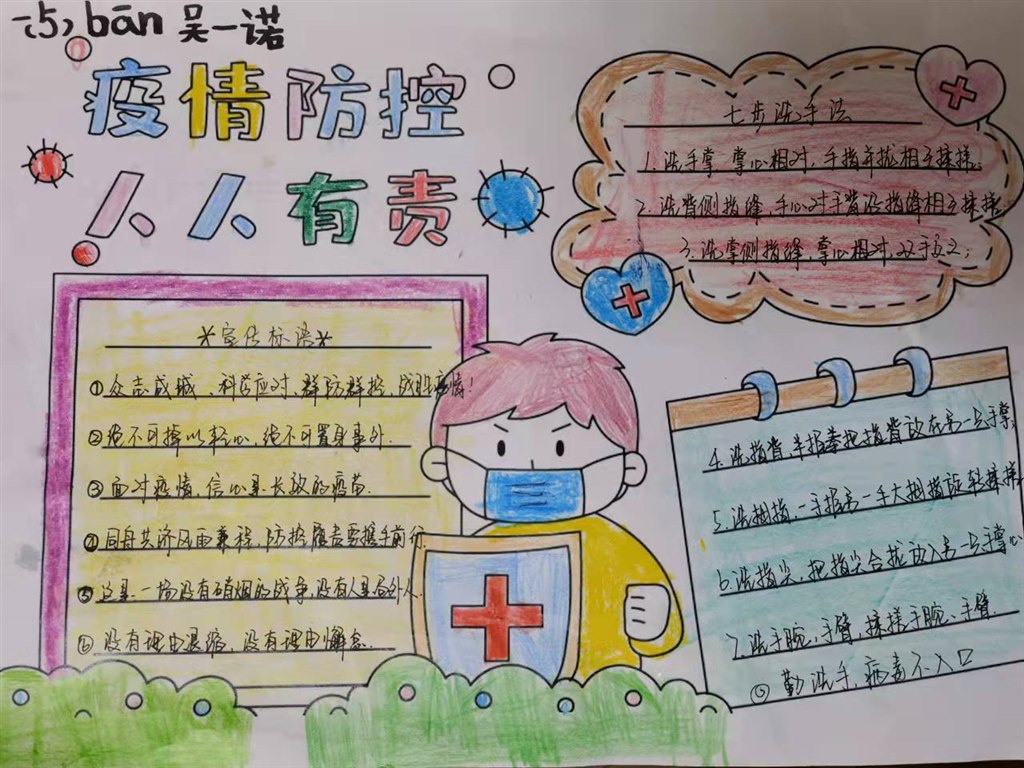 一(5)bān 吴一诺
疫情防控
人人有责
七步洗手法
1.洗手掌 掌心相对,手指并拢相互揉搓.
2.洗背侧指缝,手心对手背沿指缝相互揉搓
3.洗掌侧指缝,掌心相对,双手交叉;
*宣传标语*
①众志成城、科学应对、群防群控,战胜疫情!
②绝不可掉以轻心,绝不可置身事外.
③面对疫情,信心是长效的疫苗.
④同舟共济风雨兼程,防控履责要携手前行.
⑤这是一场没有硝烟的战争,没有人是局外人.
⑥没有理由退缩,没有理由懈怠.
4.洗指背,半握拳把指背放在另一只手掌,
5.洗拇指,一手握另一手大拇指旋转揉搓
6.洗指尖,把指尖合拢放入另一只手掌心
7.洗手腕,手臂,揉搓手腕、手臂.
勤洗手,病毒不入口